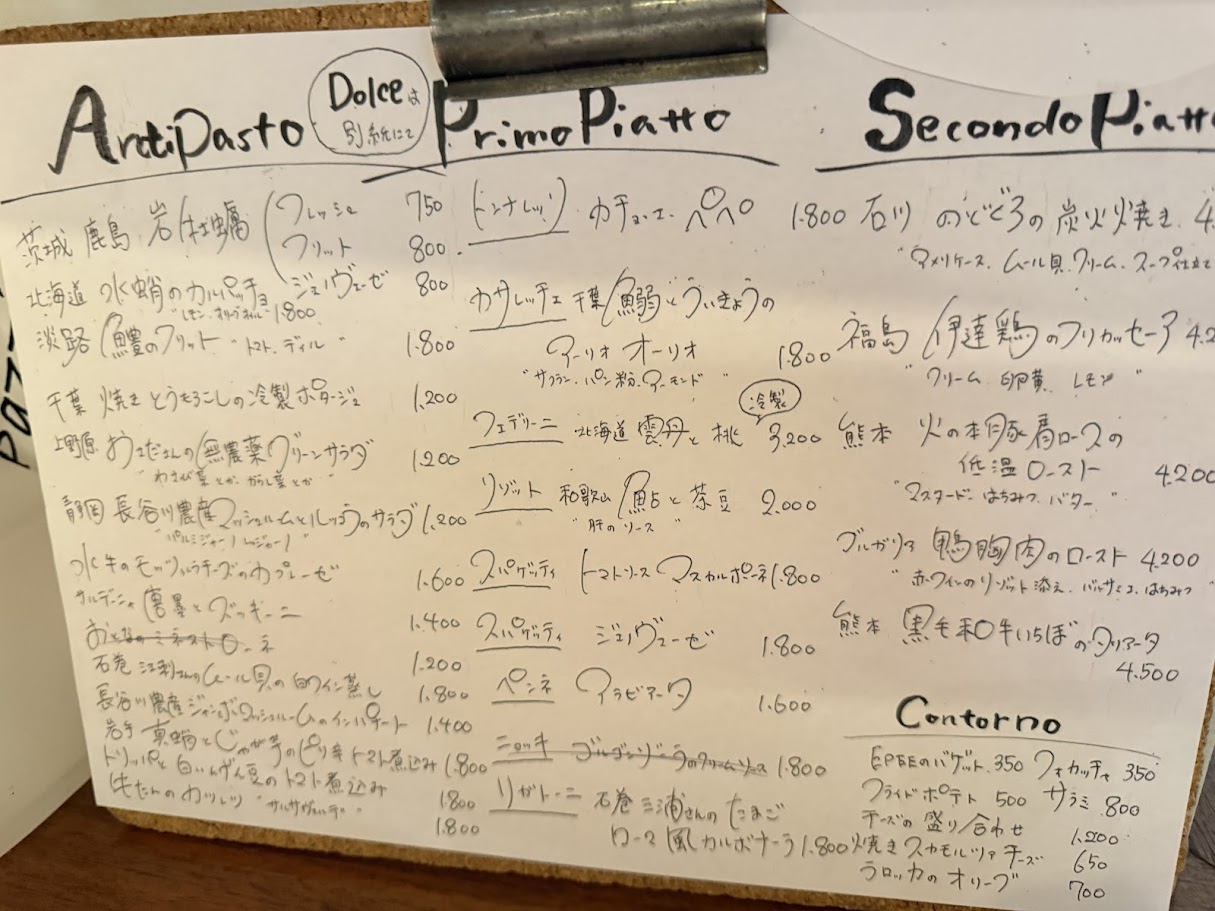 AntiPasto
Dolceは
別紙にて
茨城 鹿島 岩牡蠣
フレッシュ 750
フリット 800
ジェノヴェーゼ 800
北海道 水蛸のカルパッチョ
1.800
淡路 鱧のフリット "トマト.ディル" 1.800
千葉 焼きとうもろこしの冷製ポタージュ 1.200
上野原 おさださんの無農薬グリーンサラダ 1.200
"わさび菜とか からし菜とか"
静岡 長谷川農産マッシュルームとルッコラのサラダ 1.200
"パルミジャーノレッジャーノ"
水牛のモッツァレラチーズのカプレーゼ 1.600
サルデーニャ 唐墨とズッキーニ 1.400
おとなのミネストローネ 1.200
石巻 江刺さんのムール貝の白ワイン蒸し 1.800
長谷川農産ジャンボマッシュルームのインパナート 1.400
岩手 真蛸とじゃが芋のピリ辛トマト煮込み 1.800
トリッパと白いんげん豆のトマト煮込み 1.800
牛たんのカツレツ "サルサヴェルデ" 1.800
Primo Piatto
トンナレッリ カチョ.エ.ペペ 1.800
カサレッチェ 千葉 鰯とういきょうの
アーリオ オーリオ 1.800
"サフラン.パン粉.アーモンド"
冷製
フェデリーニ 北海道 雲丹と桃 3.200
リゾット 和歌山 鮎と茶豆 2.000
"肝のソース"
スパゲッティ トマトソース マスカルポーネ 1.800
スパゲッティ ジェノヴェーゼ 1.800
ペンネ アラビアータ 1.600
ニョッキ ゴルゴンゾーラのクリームソース 1.800
リガトーニ 石巻 三浦さんのたまご
ローマ風カルボナーラ 1.800
Secondo Piatto
石川 のどぐろの炭火焼き 4.
"アメリケーヌ.ムール貝.クリーム.スープ仕立て
福島 伊達鶏のフリカッセーア 4.2
"クリーム 卵黄 レモン"
熊本 火の本豚肩ロースの
低温ロースト 4.200
"マスタード.はちみつ.バター"
ブルガリア 鴨胸肉のロースト 4.200
"赤ワインのリゾット添え.バルサミコ.はちみつ"
熊本 黒毛和牛いちぼのタリアータ
4.500
Contorno
EPEEのバゲット.350 フォカッチャ 350
フライドポテト 500 サラミ 800
チーズの盛り合わせ 1.200
焼きスカモルツァチーズ 650
ラロッカのオリーブ 700